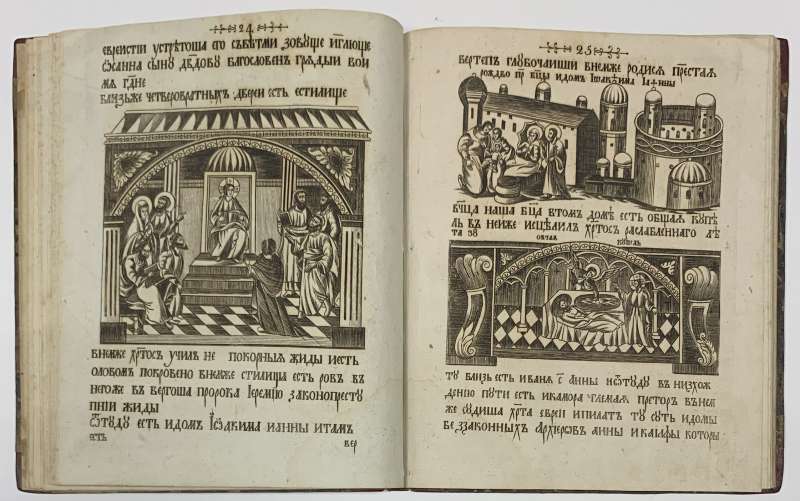 24
евреистїи устрѣтоша его съвѣтми зовуще и гл҃юще
ѡсанна сыну дв҃дову благословенъ грѧдыи во и
мѧ гд҃не
близьже четверовратныхъ двереи есть стилище
внемже хр҃тосъ училъ не покорныѧ жиды и есть
оловомъ покровено внемже стилища есть ровъ въ
негоже въ вергоша пророка Іеремїю законопресту
пнїи жиды
ѿтуду есть и домъ Іѡакима и анны и тамъ
есть
вер
25
вертепъ глубочаишїи внемже родисѧ прес҃таѧ
рождво пр҃ бц҃ы и домъ Iѡакима I анны
вц҃ца наша бц҃а втомъ домѣ есть общаѧ купѣ
ль въ неиже исцѣлилъ хр҃тосъ раслабленнаго лѣ
та 38
овчаѧ купѣль
ту близь есть и банѧ с҃ анны и ѿтуду в низхож
денїю пути есть и камора гл҃емаѧ преторъ в неи
же судиша хр҃та евреи и пилатъ ту суть и домы
беззаконныхъ архїереѡвъ анны и каїафы которы